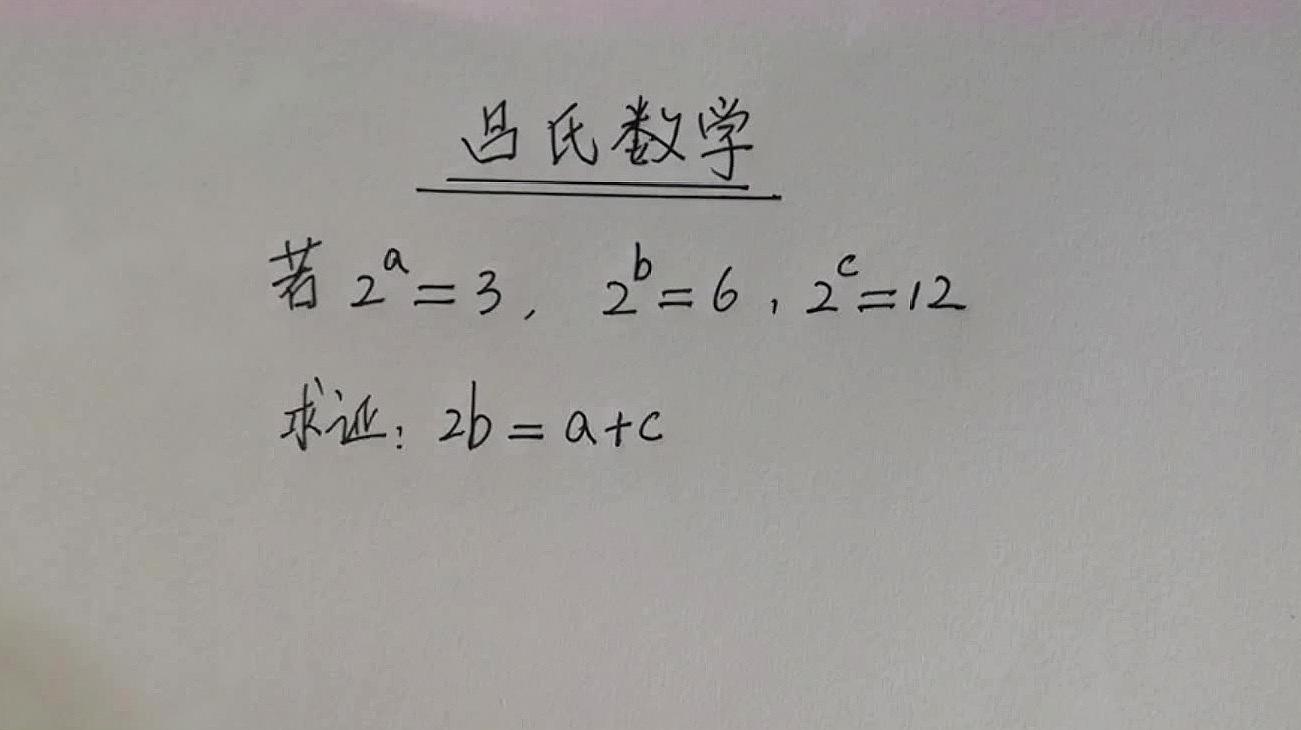 吕氏数学
若 2^a = 3, 2^b = 6, 2^c = 12
求证: 2b = a+c